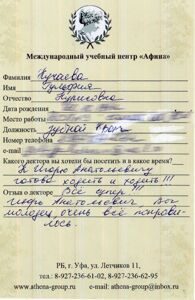 Международный учебный центр «Афина»
Фамилия Кучаева
Гульфия
Отчество
Дата рождения
Место работы
Должность Зубной врач
Номер телефона
e-mail
Какого доктора вы хотели бы посетить и в какое время?
К Игорю Анатольевичу
готова ходить и ходить!!!
Отзыв о лекторе Всё супер!!!
Игорь Анатольевич Вы
молодец, очень всё понрави-
лось.
РБ, г. Уфа, ул. Летчиков 11,
тел.: 8-927-236-61-02, 8-927-236-62-95
www.athena-group.ru e-mail: athena-group@inbox.ru